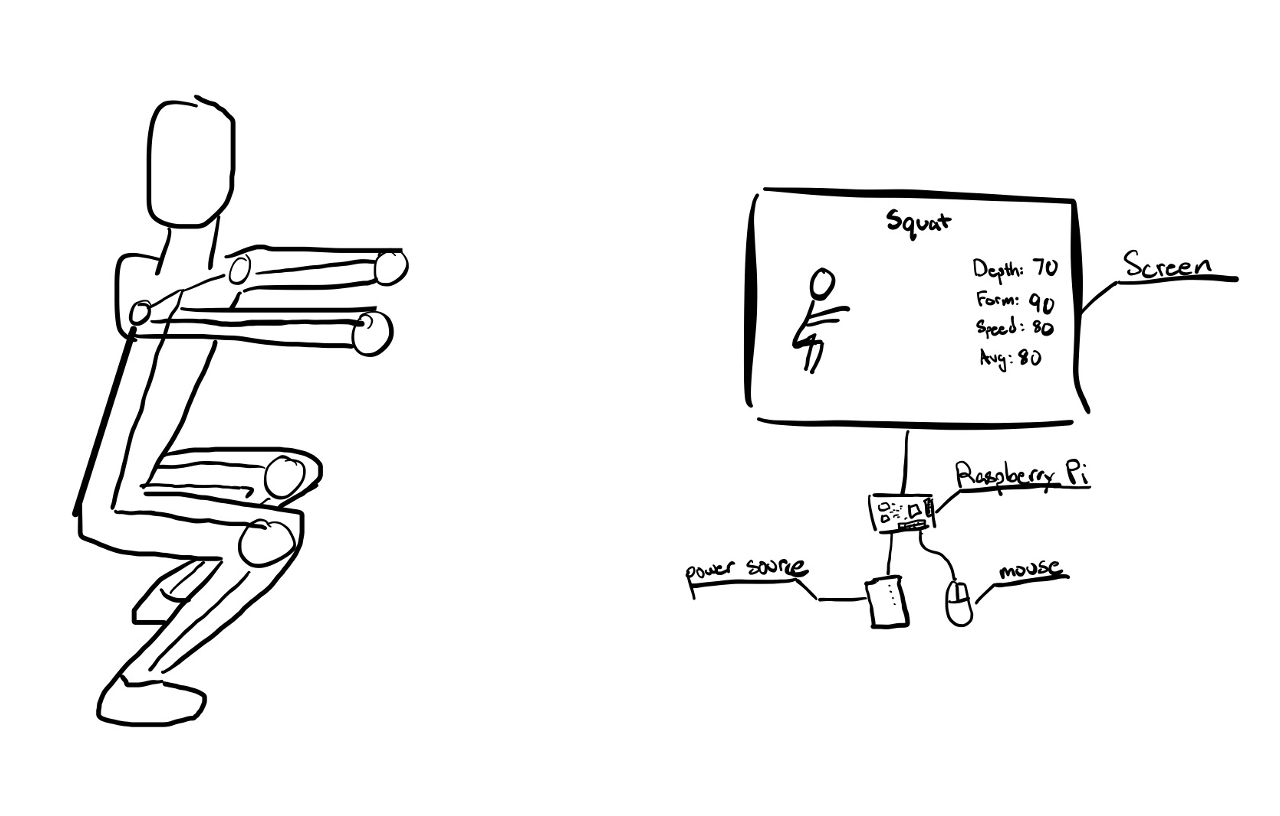 Squat
Depth: 70
Form: 90
Speed: 80
Avg: 80
Screen
Raspberry Pi
power source
mouse